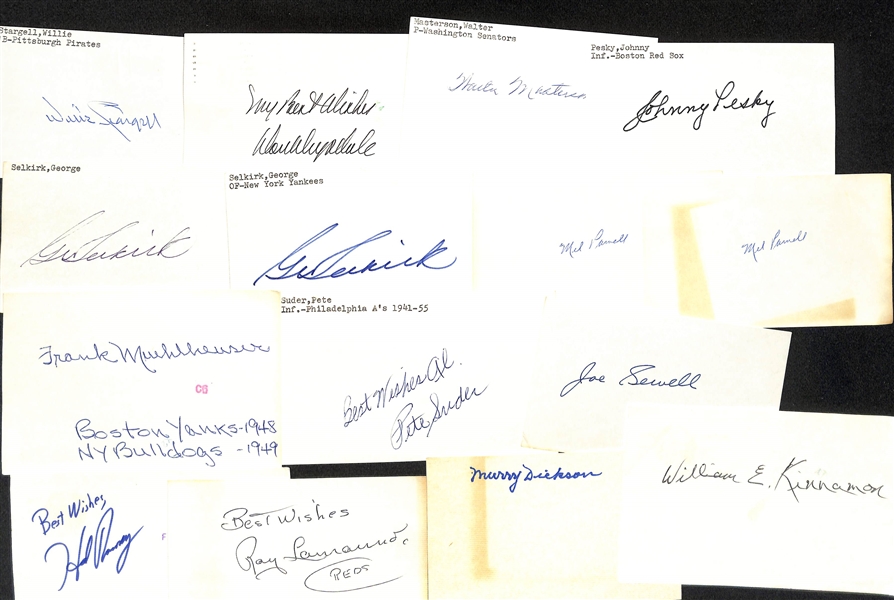 Stargell,Willie
B-Pittsburgh Pirates
Willie Stargell
My Best Wishes
Don Drysdale
Masterson,Walter
P-Washington Senators
Walter Masterson
Pesky,Johnny
Inf.-Boston Red Sox
Johnny Pesky
Selkirk,George
Geo Selkirk
Selkirk,George
OF-New York Yankees
Geo Selkirk
Mel Parnell
Mel Parnell
Frank Muehlheuser
CG
Boston Yanks-1948
NY Bulldogs -1949
Suder,Pete
Inf.-Philadelphia A's 1941-55
Best Wishes Al.
Pete Suder
Joe Sewell
Best Wishes,
Best Wishes
Ray Lamanno.
REDS
Murry Dickson
William E. Kinnamon